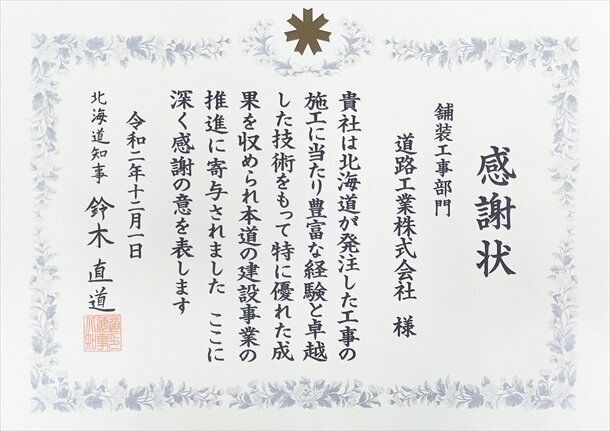 感謝状
舗装工事部門
道路工業株式会社 様
貴社は北海道が発注した工事の
施工に当たり豊富な経験と卓越
した技術をもって特に優れた成
果を収められ本道の建設事業の
推進に寄与されました ここに
深く感謝の意を表します
令和二年十二月一日
北海道知事 鈴木直道